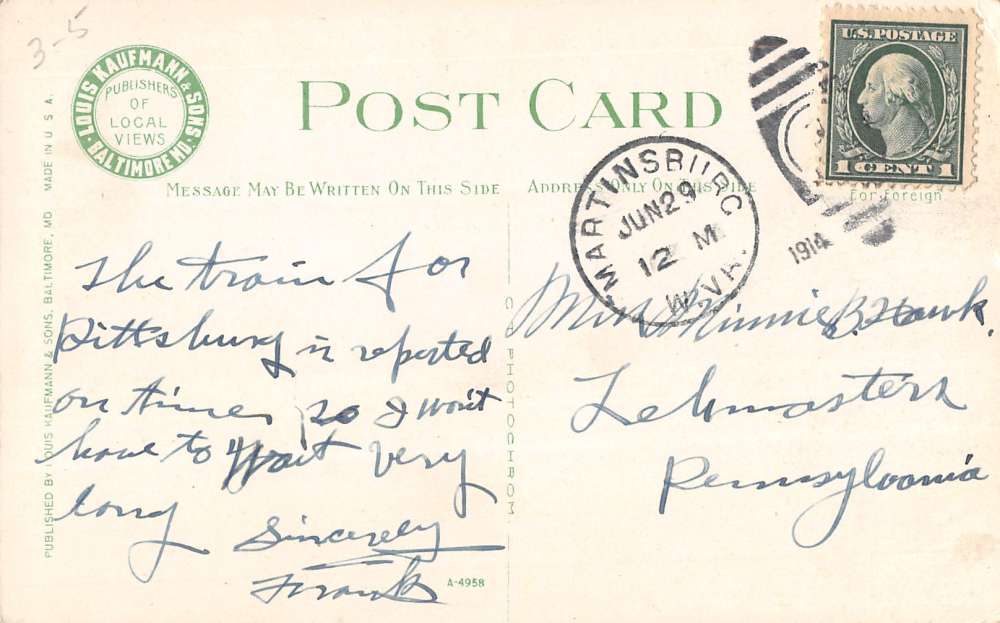 3-5
LOUIS KAUFMANN & SONS
PUBLISHERS
OF
LOCAL
VIEWS
BALTIMORE MD.
POST CARD
U.S. POSTAGE
1 CENT 1
MESSAGE MAY BE WRITTEN ON THIS SIDE
ADDRESS ONLY ON THIS SIDE
For Foreign
MARTINSBURG
JUN 29
12 M
W.VA.
1914
The train for
Pittsburg is reported
on time, so I won't
have to Wait very
long
Sincerely
Frank
Miss Minnie B. Hawk.
Lehmasters
Pennsylvania
A-4958
PUBLISHED BY LOUIS KAUFMANN & SONS, BALTIMORE, MD
MADE IN U S A.
PHOTOCHROM